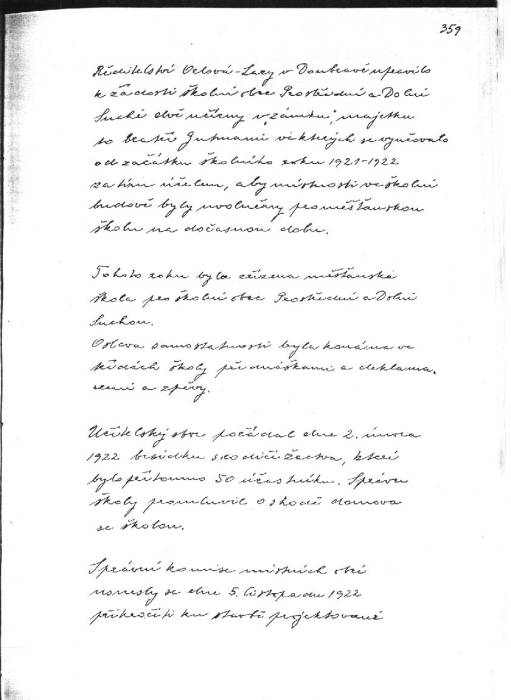 359
Ředitelství Orlová-Lazy v Doubravě upravilo
k žádosti školní obec Prostřední a Dolní
Suché dvě učírny v "zámku", majetku
to bratří Gutmanů ve kterých se vyučovalo
od začátku školního roku 1921-1922
za tím účelem, aby místnosti ve školní
budově byly uvolněny pro měšťanskou
školu na dočasnou dobu.
Tohoto roku byla zřízena měšťanská
škola pro školní obec Prostřední a Dolní
Suchou.
Oslava samostatnosti byla konána ve
třídách školy přednáškami a deklama-
cemi a zpěvy.
Učitelský sbor pořádal dne 2. února
1922 besídku s rodiči žactva, které
bylo přítomno 50 účastníků. Správce
školy promluvil o shodě domova
se školou.
Správní komise místních obcí
usnesly se dne 5. listopadu 1922
přikročiti ku stavbě projektované